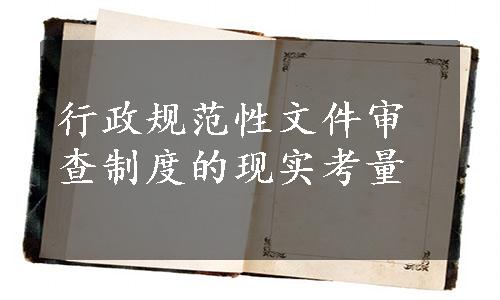 行政规范性文件审
查制度的现实考量